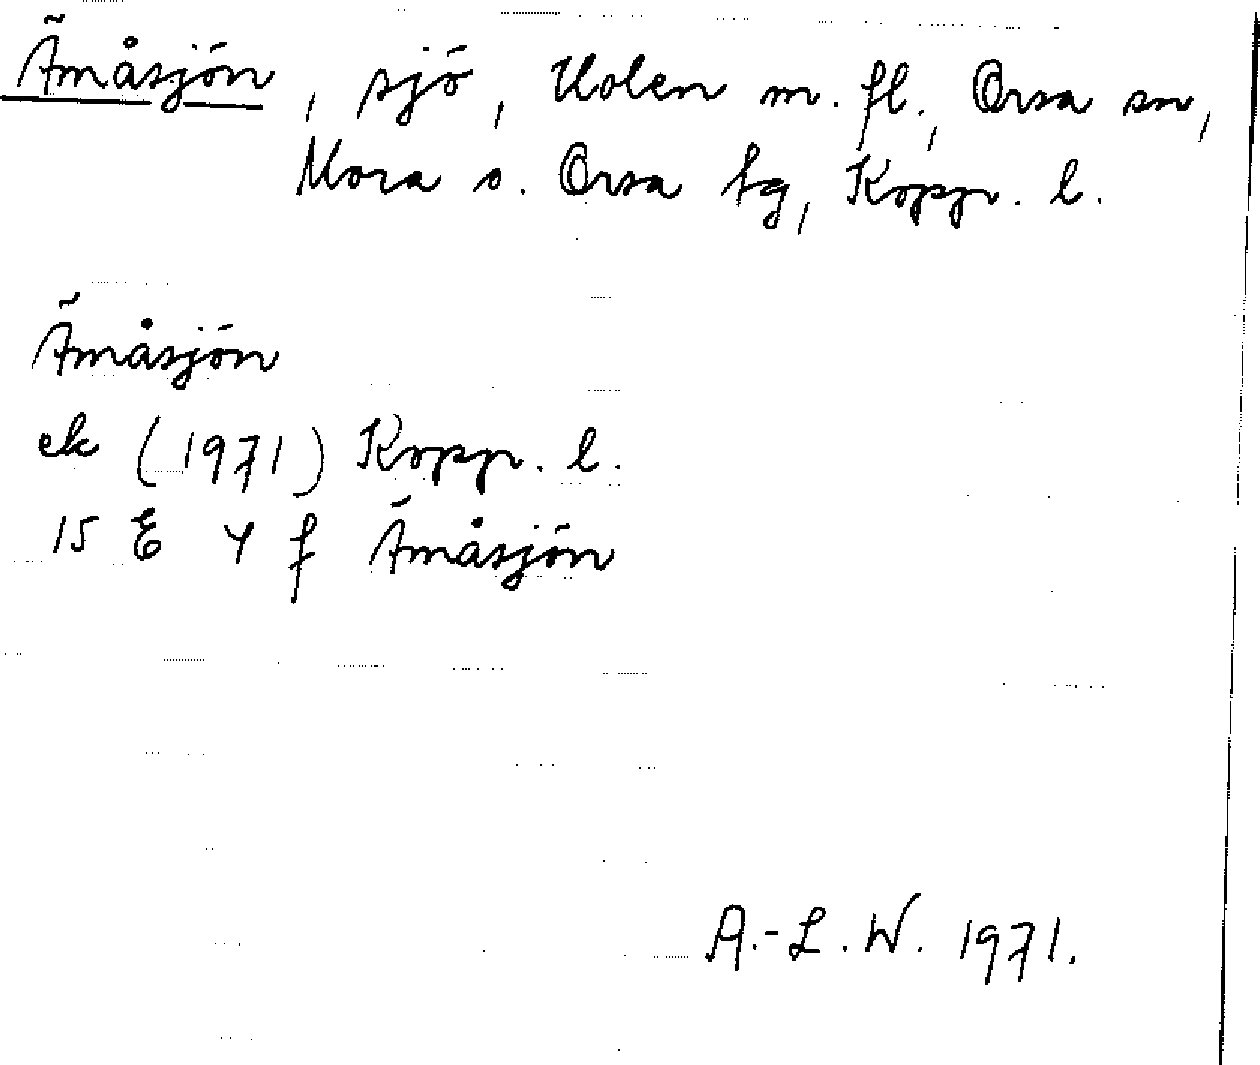 Ämåsjön, sjö, Uolen m. fl., Orsa sn,
Mora o. Orsa tg, Kopp. l.
Ämåsjön
ek (1971) Kopp. l.
15 E 4 f Ämåsjön
A.-L. W. 1971.